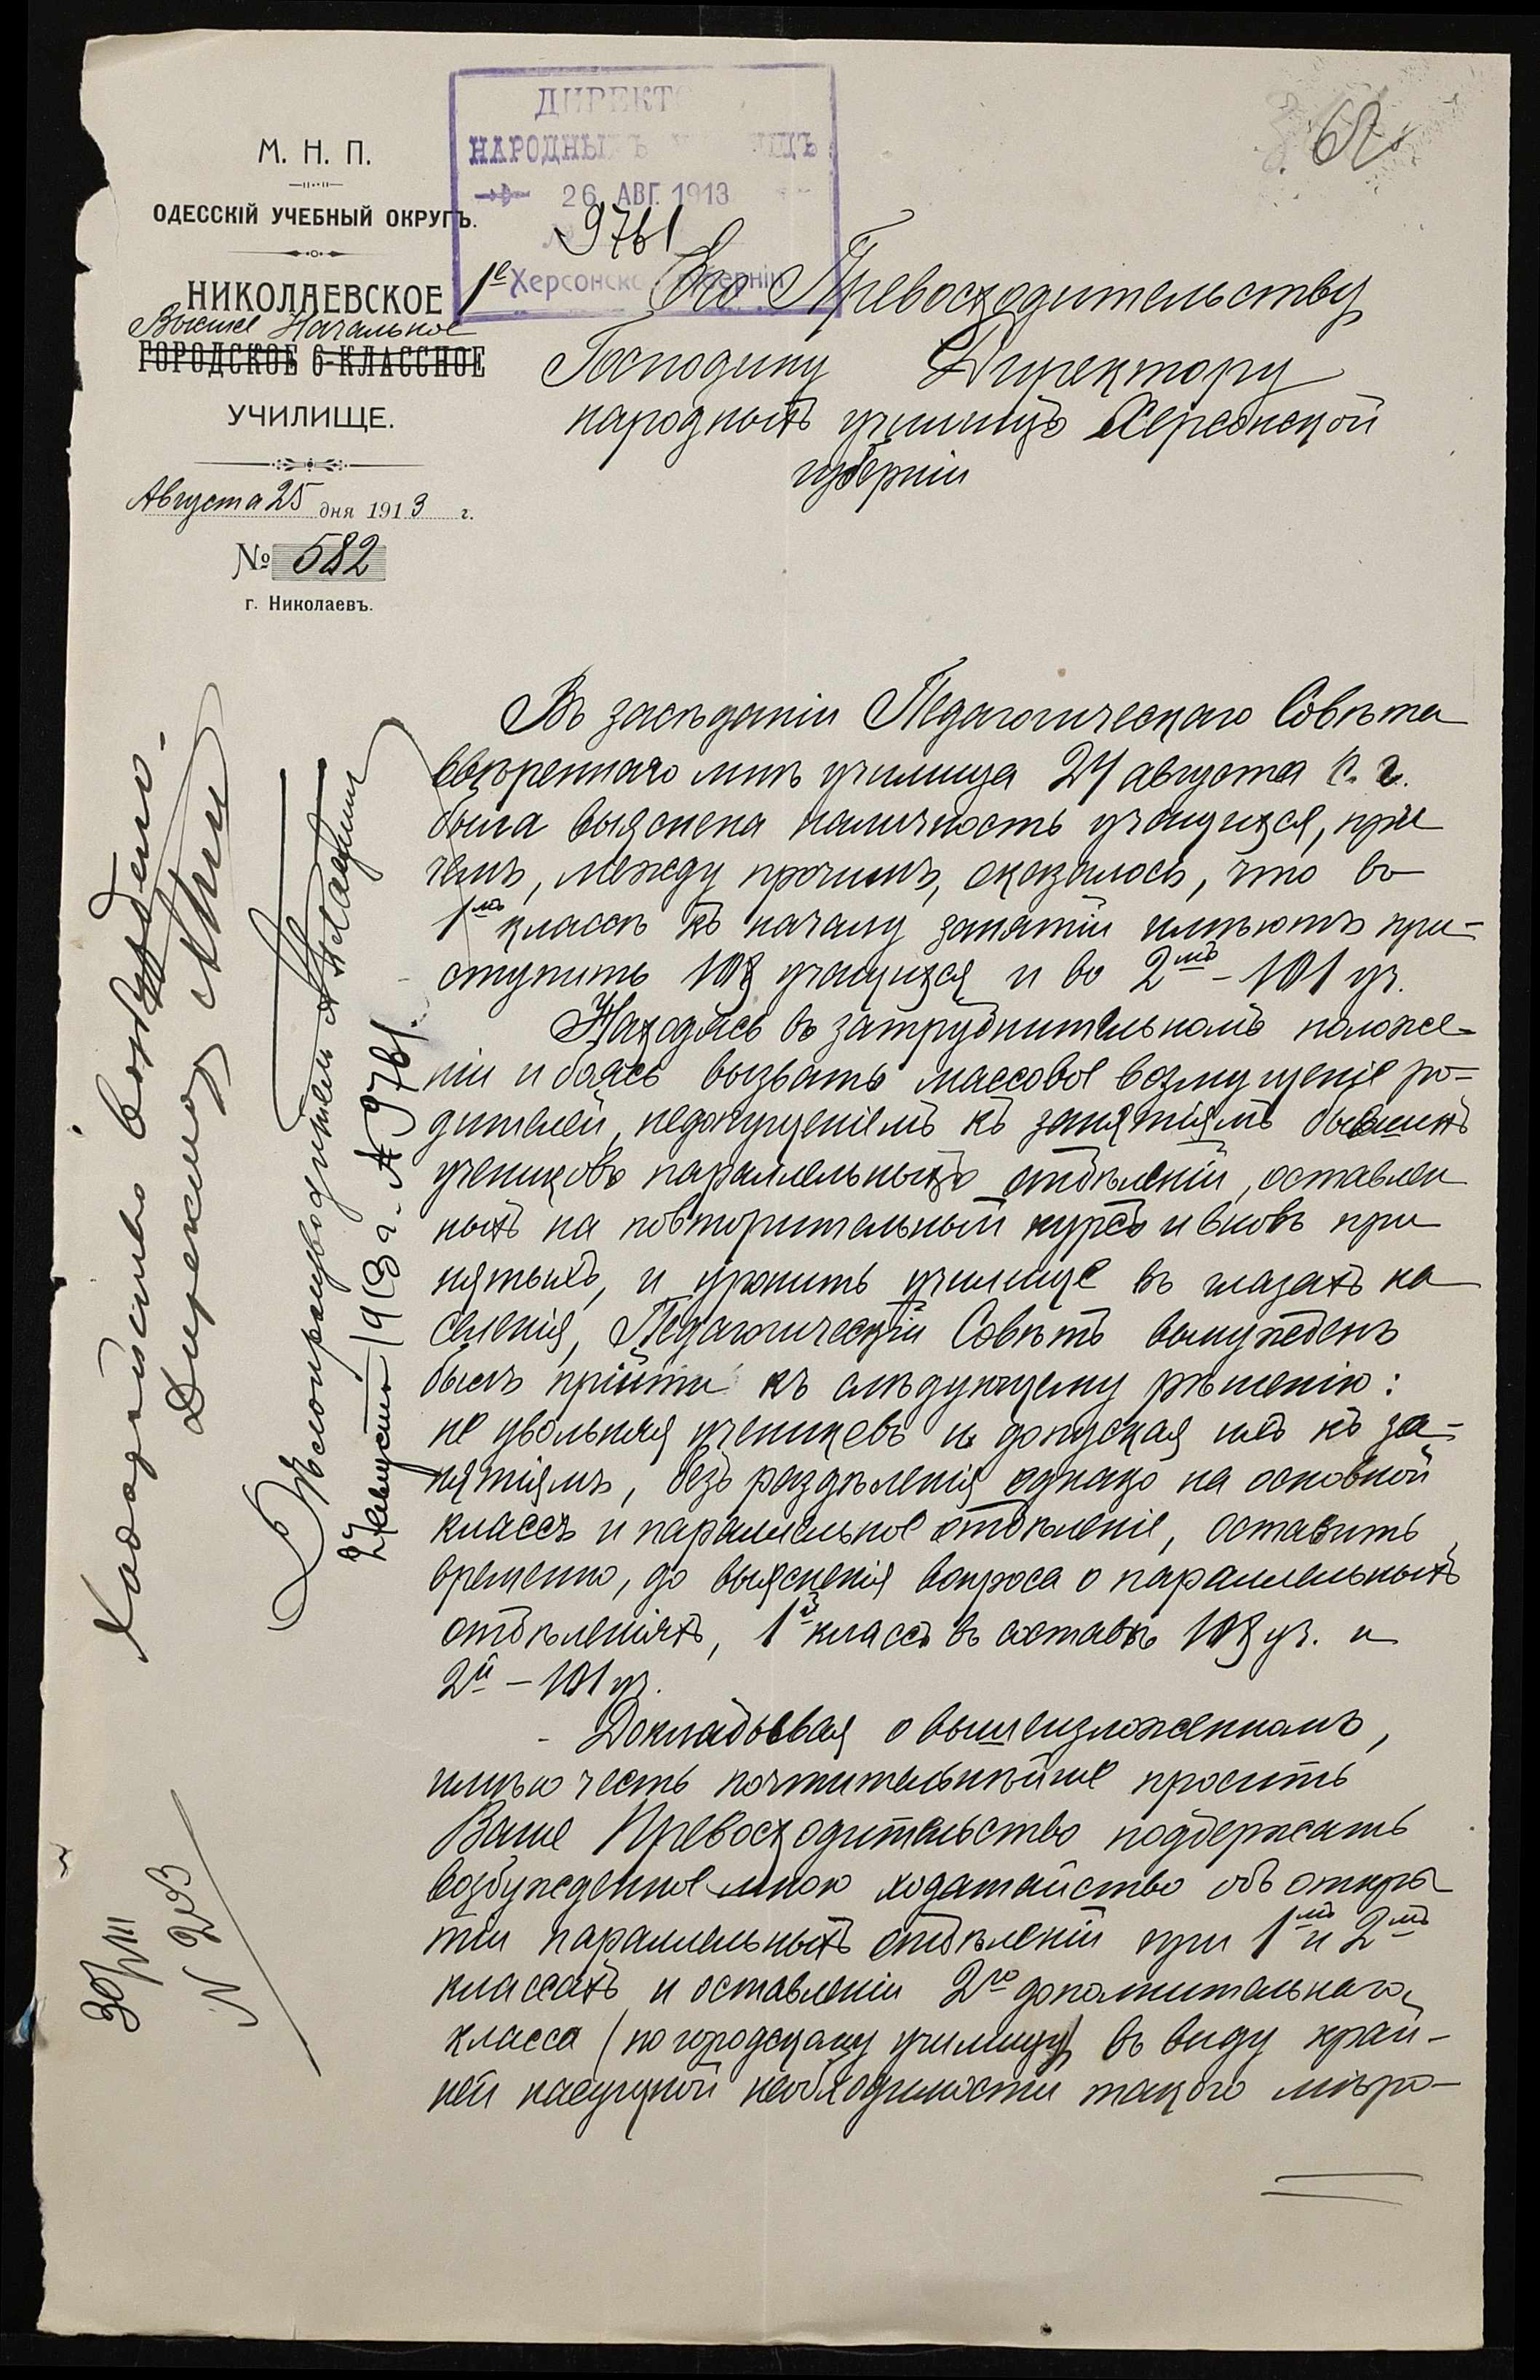 М. Н. П.
ОДЕССКІЙ УЧЕБНЫЙ ОКРУГЪ.
НИКОЛАЕВСКОЕ 1е
Высшее Начальное
ГОРОДСКОЕ 6-КЛАССНОЕ
УЧИЛИЩЕ.
Августа 25 дня 1913 г.
№ 582
г. Николаевъ.
ДИРЕКТ
НАРОДНЫХЪ ЩЪ
26 АВГ. 1913
9761
Херсонско губерніи
Его Превосходительству
Господину Директору
народныхъ училищъ Херсонской
губерніи
Въ засѣданіи Педагогическаго Совѣта
ввѣреннаго мнѣ училища 24 августа с. г.
была выяснена наличность учащихся, при
чемъ, между прочимъ, оказалось, что въ
1мъ классѣ къ началу занятій имѣютъ при-
ступить 108 учащихся и во 2мъ – 101 уч.
Находясь въ затруднительномъ положе-
ніи и боясь вызвать массовое возмущеніе ро-
дителей, недопущеніемъ къ занятіямъ бывшихъ
учениковъ параллельныхъ отдѣленій, оставлен
ныхъ на повторительный курсъ и вновь при
нятыхъ, и уронить училище въ глазахъ на
селенія, Педагогическій Совѣтъ вынужденъ
былъ прійти къ слѣдующему рѣшенію:
не увольняя учениковъ и допуская ихъ къ за-
нятіямъ, безъ раздѣленія однако на основной
классъ и параллельное отдѣленіе, оставить
временно, до выясненія вопроса о параллельныхъ
отдѣленіяхъ, 1й классъ въ составѣ 108 уч. и
2й – 101 уч.
Докладывая о вышеизложенномъ,
имѣю честь почтительнѣйше просить
Ваше Превосходительство поддержать
возбужденное мною ходатайство объ откры
тіи параллельныхъ отдѣленій при 1мъ и 2мъ
классахъ и оставленіи 2го дополнительнаго
класса (по городскому училищу) въ виду край-
ней насущной необходимости такого мѣро-
Ходатайство возбуждено.
Директоръ
Дѣлопроизводитель
27 августа 1913 г. № 9761.
30/VIII
N 203